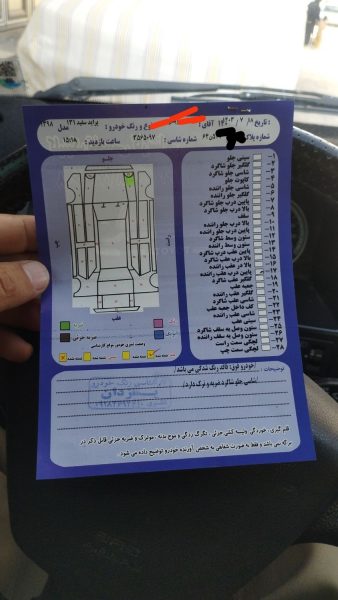 تاریخ : ۱۴۰۳/۷/۱۸ آقای : نوع و رنگ خودرو : پراید سفید ۱۳۱ مدل ۱۳۹۸
شماره پلاک شماره شاسی : ۳۵۶۵۰۹۷ ساعت بازدید : ۱۵:۱۹
جلــو
عقب
۱- سینی جلو
۲- گلگیر جلو شاگرد
۳- شاسی جلو شاگرد
۴- کاپوت جلو
۵- شاسی جلو راننده
۶- گلگیر جلو راننده
۷- پایین درب جلو شاگرد
۸- بالا درب جلو شاگرد
۹- سقف
۱۰- بالا درب جلو راننده
۱۱- پایین درب جلو راننده
۱۲- ستون وسط شاگرد
۱۳- ستون وسط راننده
۱۴- پایین درب عقب شاگرد
۱۵- بالا درب عقب شاگرد
۱۶- بالا در عقب راننده
۱۷- پایین درب عقب راننده
۱۸- گلگیر عقب شاگرد
۱۹- جعبه عقب
۲۰- گلگیر عقب راننده
۲۱- شاسی عقب شاگرد
۲۲- کف داخل جعبه عقب
۲۳- شاسی عقب راننده
۲۴- سینی عقب
۲۵- ستون وصل به سقف شاگرد
۲۶- ستون وصل به سقف راننده
۲۷- لچکی سمت راست
۲۸- لچکی سمت چپ
ضربه
ضربه جزئی
توضیحات : (خودرو فوق: فاقد رنگ شدگی می باشد)
(شاسی جلو شاگرد ضربه و ترک دارد.)
کارشناسی رنگ خودرو
قلم گیری ، خوردگی وشیشه کشی جزئی ، تگرگ زدگی و موج بدنه ، موتورک و ضربه جزئی قابل ذکر در
برگه نمی باشد و فقط به صورت شفاهی به شخص آورنده خودرو توضیح داده می شود.